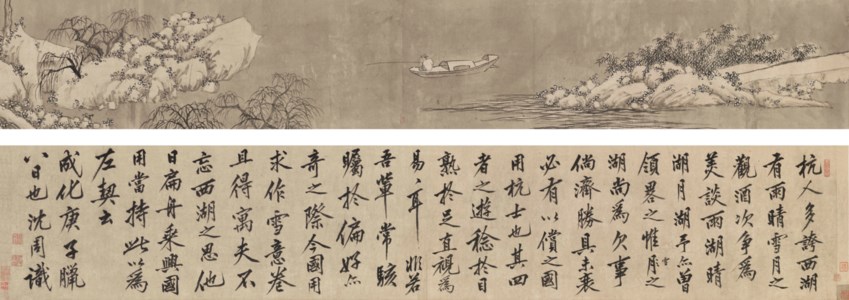 杭人多誇西湖
有雨晴雪月之
觀酒次爭為
美談雨湖晴
湖月湖予亦曾
領畧之惟月之
湖尚為欠事
倘濟勝具未衰
必有以償之國
用杭士也其四
者之遊稔於目
熟於足直視為
易〻耳非若
吾輩常駭
矚於偏好亦
奇之際今國用
求作雪意卷
且得寓夫不
忘西湖之思他
日扁舟乘興國
用當持此以為
左契云
成化庚子臘
八日也沈周識